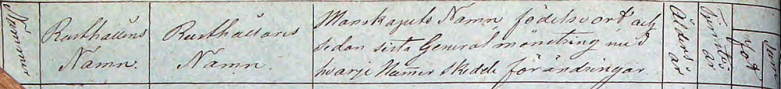 Nummer
Rusthållens
Namn.
Rusthållares
Namn.
Manskapets Namn födelseort och
sedan sista General mönstring med
hvarje Numer skedde förändringar
Ålders
år
Tjenste
år
fot